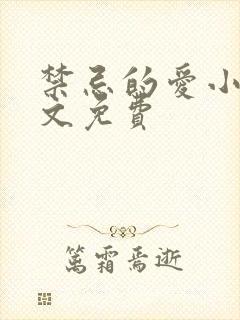 禁忌的爱小
文免费
篤霜焉逝